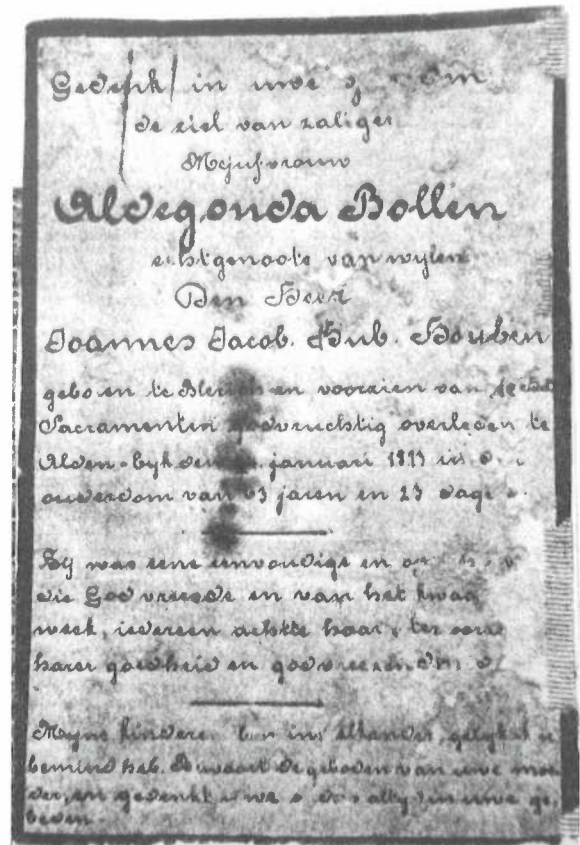 Gedenk in uwe
de ziel van zaliger
Mejufvrouw
Aldegonda Bollen
echtgenoote van wylen
Den Heer
Joannes Jacob. Hub. Houben
geboren te Blerick en voorzien van de
Sacramenten godvruchtig overleden te
januari in den
ouderdom van jaren en 23 dagen.
Zy was eene eenvoudige en
die God vreesde en van het kwaad
week, iedereen achtte haar, ter
harer goedheid en
Mijne kinderen elkander, gelyk ik
bemind heb. Bewaart de geboden van uwe moe
der, en gedenkt altyd in uwe ge
beden.